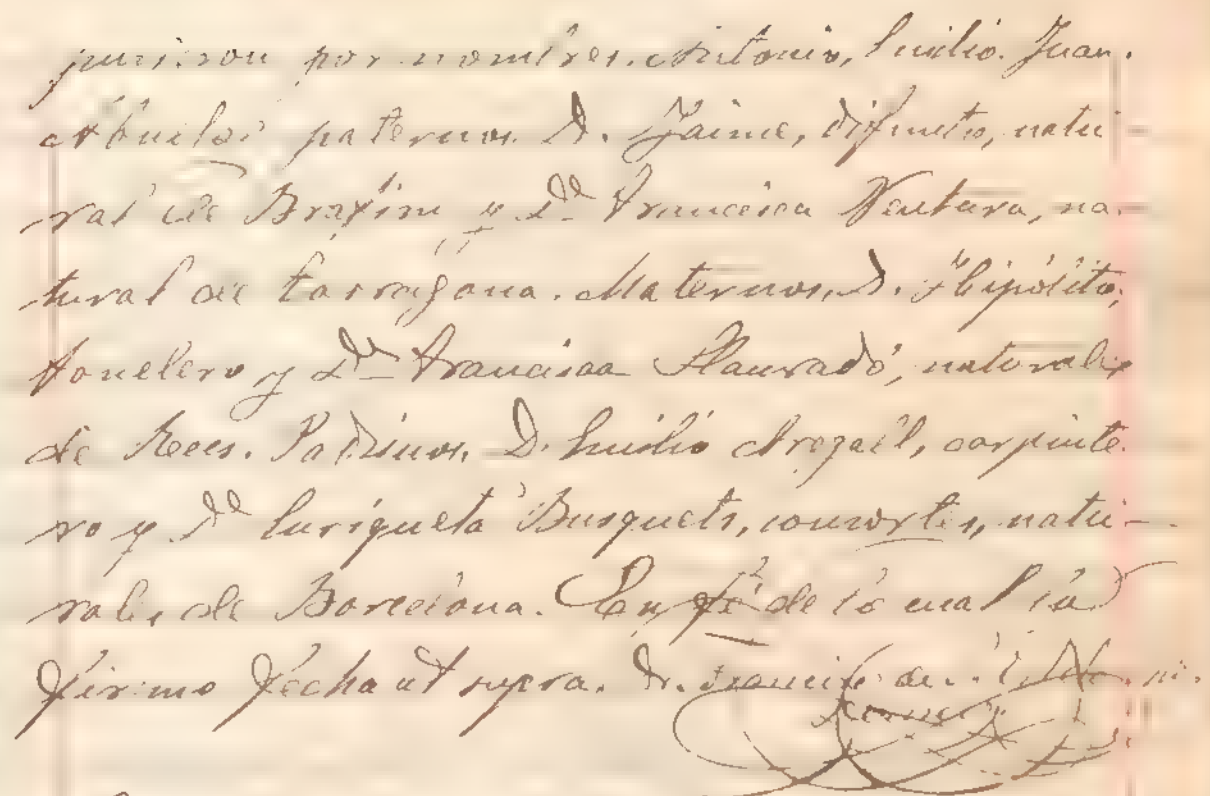 pusieron por nombres. Antonio, Emilio. Juan.
Abuelos paternos. D. Jaime, difunto, natu-
ral de Brafim y Dª Francisca Ventura, na-
tural de Tarragona. Maternos, D. Hipólito,
tonelero y Dª Francisca Llauradó, naturales
de Reus. Padrinos, D. Emilio Aragall, carpinte-
ro y Dª Enriqueta Busquets, consortes, natu-
rales de Barcelona. En fé de lo cual la
firmo fecha ut supra. Fr. Francisco de